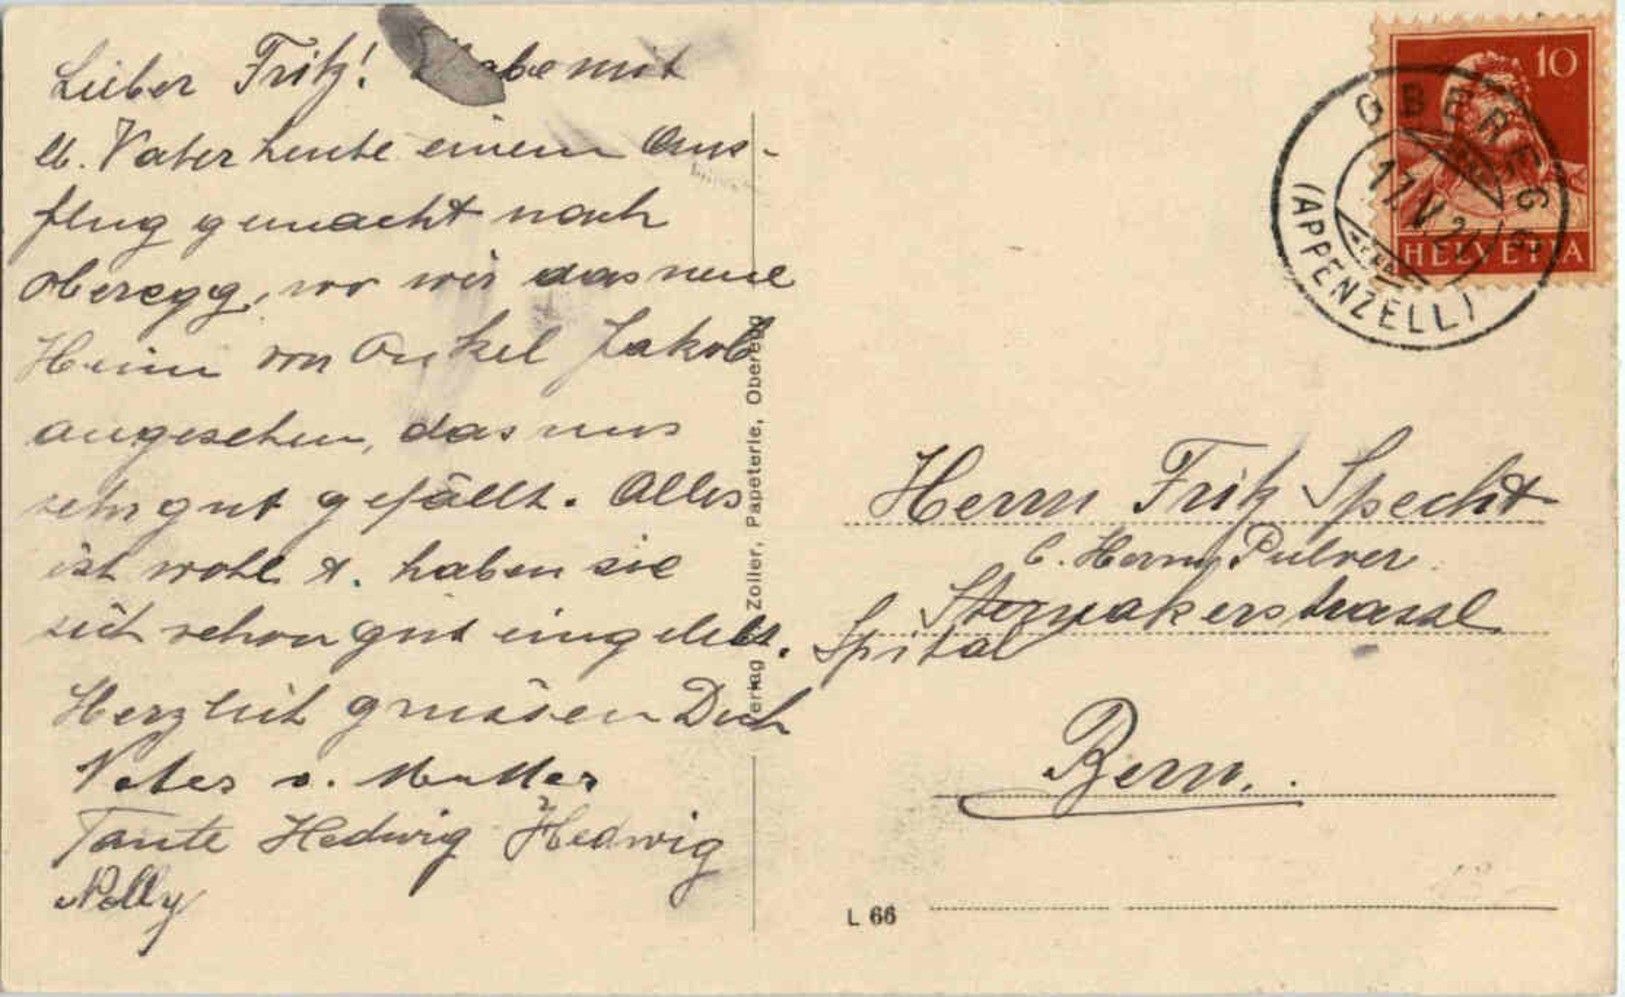 Lieber Fritz! Habe mit
lb. Vater heute einen Aus-
flug gemacht nach
Oberegg, wo wir das neue
Heim von Onkel Jakob
angesehen, das uns
sehr gut gefällt. Alles
ist wohl u. haben sie
sich schon gut eingelebt.
Herzlich grüssen Dich
Vater u. Mutter
Tante Hedwig Hedwig
Nelly
Verlag Zoller, Papeterie, Oberegg
10
HELVETIA
OBEREGG
17.V.2
(APPENZELL)
Herrn Fritz Specht
b. Herrn Pulver.
Spitalackerstrasse
Bern.
L 66